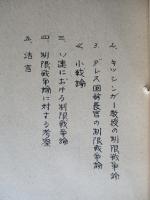 2、キッシンガー教授の制限戦争論
3、ダレス国務長官の制限戦争論
4、小戦論
三、ソ連における制限戦争論
四、制限戦争論に対する考察
五、結言